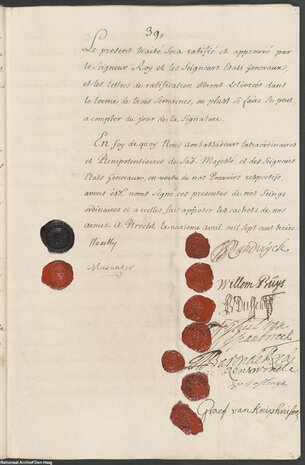 39.
Le present traité sera ratifié et approuvé par
le Seigneur Roy et les Seigneurs Etats Generaux,
et les lettres de ratification seront delivrées dans
le terme de trois semaines, ou plustôt si faire se peut,
a compter du jour de la Signature.
En foy de quoy Nous Ambassadeurs Extraordinaires
et Plenipotentiaires de Sad. Majesté et des Seigneurs
Etats Generaux, en vertu de nos Pouvoirs respectifs,
avons esd. noms signé ces presentes de nos Seings
ordinaires et a icelles fait apposer les cachets de nos
armes. A Utrecht le onzieme avril mil sept cent treize
Huxelles
Mesnager
Randwyck
Willem Buys
Dussen
van
Spanbroeck
Rede
Renswoude
Goslinga
Graef van Kniphuisen
Nationaal Archief Den Haag